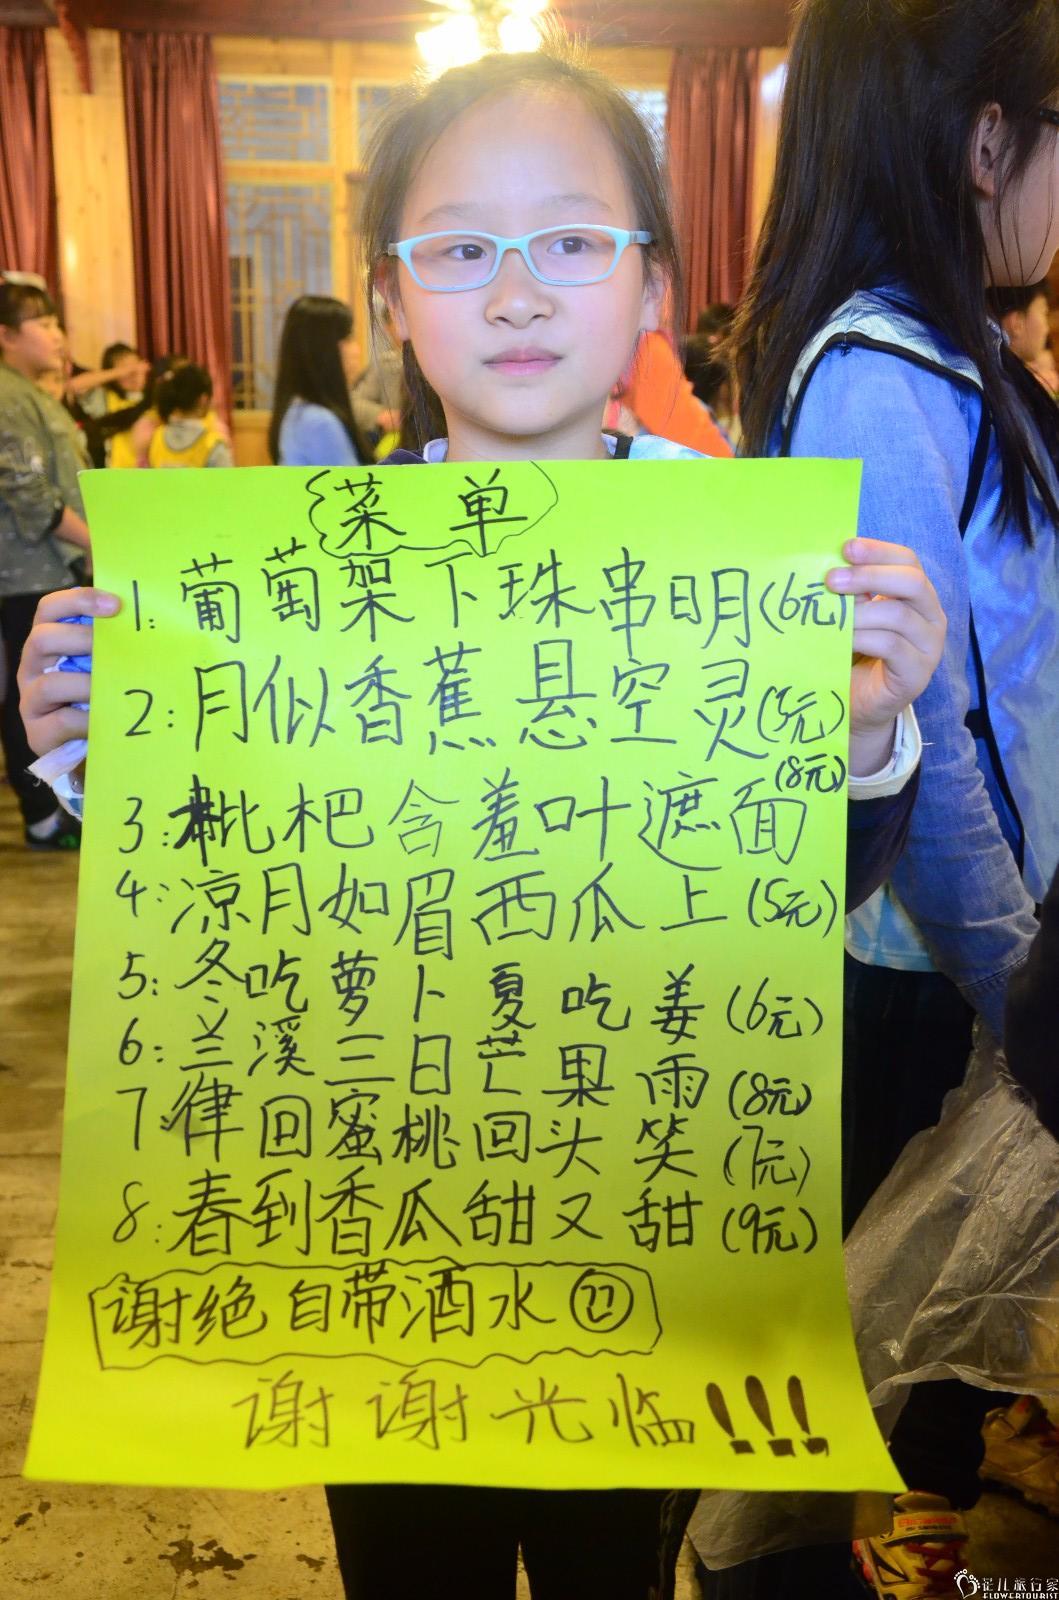 菜单
1:葡萄架下珠串明(6元)
2:月似香蕉悬空灵(5元)
3:枇杷含羞叶遮面(8元)
4:凉月如眉西瓜上(5元)
5:冬吃萝卜夏吃姜(6元)
6:兰溪三日芒果雨(8元)
7:律回蜜桃回头笑(7元)
8:春到香瓜甜又甜(9元)
谢绝自带酒水
谢谢光临!!!
花儿旅行家
FLOWERTOURIST